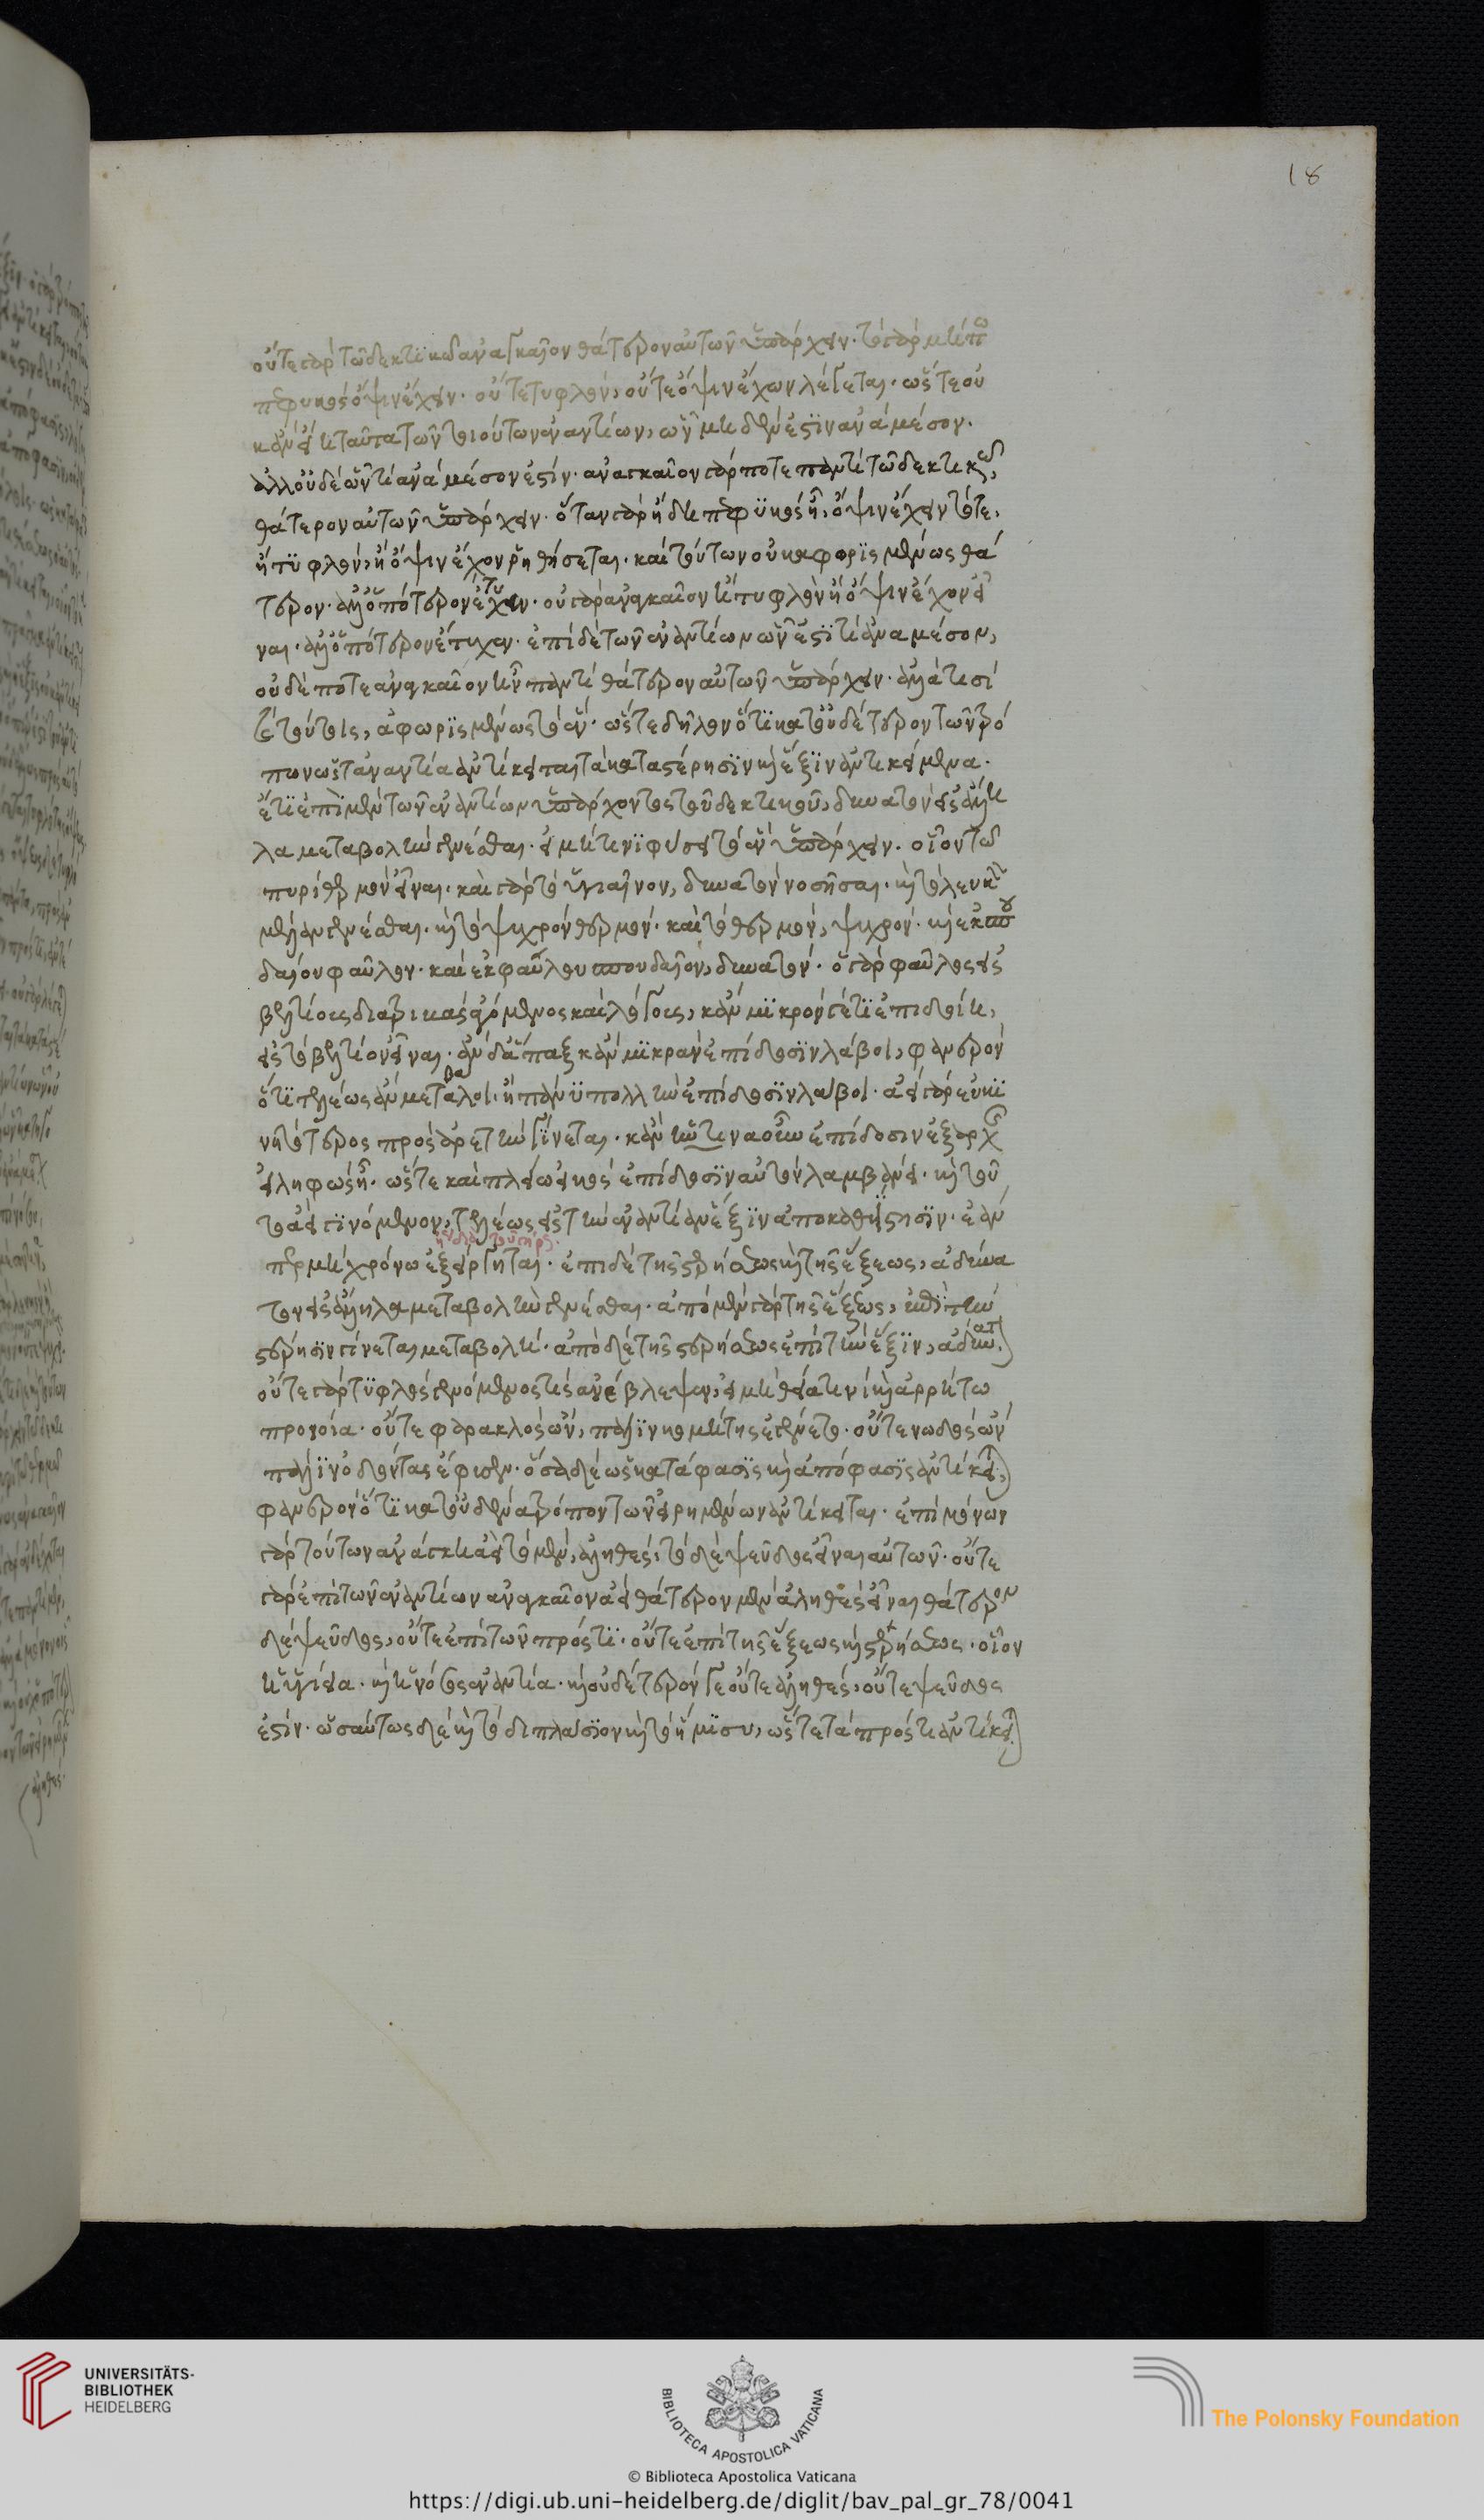 18
οὔτε γὰρ τῶ δεκτικῶ ἀναγκαῖον θάτερον αὐτῶν ὑπάρχειν· τὸ γὰρ μήπω
πεφυκὸς ὄψιν ἔχειν· οὔτε τυφλὸν, οὔτε ὄψιν ἔχων λέγεται· ὥστε οὐ
κἂν εἴη ταῦτα τῶν τοιούτων ἐναντίων, ὧν μηδέν ἐστιν ἀνὰ μέσον.
ἀλλ' οὐδὲ ὧν τι ἀνὰ μέσον ἐστίν· ἀναγκαῖον γάρ ποτε παντὶ τῶ δεκτικῶ,
θάτερον αὐτῶν ὑπάρχειν· ὅταν γὰρ ἤδη πεφυκὸς ἦ, ὄψιν ἔχειν τότε,
ἢ τυφλὸν, ἢ ὄψιν ἔχον ῥηθήσεται· καὶ τούτων οὐκ ἀφορισμένως θά
τερον· ἀλλ' ὁπότερον ἔτυχεν· οὐ γὰρ ἀναγκαῖον ἢ τυφλὸν ἢ ὄψιν ἔχον εἶ
ναι· ἀλλ' ὁπότερον ἔτυχεν· ἐπὶ δὲ τῶν ἐναντίων ὧν ἐστί τι ἀνὰ μέσον,
οὐδέποτε ἀναγκαῖον ἦν παντὶ θάτερον αὐτῶν ὑπάρχειν· ἀλλὰ τισὶ
καὶ τούτοις, ἀφωρισμένως τὸ ἕν· ὥστε δῆλον ὅτι κατ' οὐδέτερον τῶν τρό
πων ὡς τὰ ἐναντία ἀντίκειται τὰ κατὰ στέρησιν καὶ ἕξιν ἀντικείμενα.
ἔτι ἐπὶ μὲν τῶν ἐναντίων ὑπάρχοντος τοῦ δεκτικοῦ, δυνατὸν εἰς ἄλλη
λα μεταβολὴν γενέσθαι· εἰ μή τινι φύσει τὸ ἓν ὑπάρχειν· οἷον τῶ
πυρὶ θερμὸν εἶναι· καὶ γὰρ τὸ ὑγιαῖνον, δυνατὸν νοσῆσαι· καὶ τὸ λευκὸν
μέλαν γενέσθαι· καὶ τὸ ψυχρὸν θερμόν· καὶ τὸ θερμὸν, ψυχρόν· καὶ ἐκ σπου
δαίου φαῦλον· καὶ ἐκ φαύλου σπουδαῖον, δυνατόν· ὁ γὰρ φαῦλος εἰς
βελτίους διατριβὰς ἀγόμενος καὶ λόγους, κἂν μικρόν γέ τι ἐπιδοίη,
εἰς τὸ βελτίον εἶναι· ἐὰν δὲ ἅπαξ κἂν μικρὰν ἐπίδοσιν λάβοι, φανερὸν
ὅτι τελέως ἂν μεταβάλοι· ἢ πάνυ πολλὴν ἐπίδοσιν λάβοι· ἀεὶ γὰρ εὐκι
νητότερος πρὸς ἀρετὴν γίνεται· κἂν ἥντινα οὖν ἐπίδοσιν ἐξ ἀρχῆς
εἰληφὼς ἦ· ὥστε καὶ πλείω εἰκὸς ἐπίδοσιν αὐτὸν λαμβάνει· καὶ τοῦ
το ἀεὶ γινόμενον, τελέως εἰς τὴν ἐναντίαν ἕξιν ἀποκαθίστησιν· ἐάν
περ μὴ χρόνω ἐξείργηται· ἐπὶ δὲ τῆς στερήσεως καὶ τῆς ἕξεως, ἀδύνα
τον εἰς ἄλληλα μεταβολὴν γενέσθαι· ἀπὸ μὲν γὰρ τῆς ἕξεως, ἐπὶ τὴν
στέρησιν γίνεται μεταβολή· ἀπὸ δὲ τῆς στερήσεως ἐπὶ τὴν ἕξιν, ἀδύνατον.
οὔτε γὰρ τυφλὸς γενόμενός τις ἀνέβλεψεν, εἰ μὴ θεία τινὶ καὶ ἀρρήτω
προνοία· οὔτε φαρακλὸς ὢν, πάλιν κομήτης ἐγένετο· οὔτε νωδὸς ὢν
πάλιν ὀδόντας ἔφυσεν· ὅσα δὲ ὡς κατάφασις καὶ ἀπόφασις ἀντίκειται,
φανερὸν ὅτι κατ' οὐδένα τρόπον τῶν εἰρημένων ἀντίκειται· ἐπὶ μόνων
γὰρ τούτων ἀνάγκη ἀεὶ τὸ μὲν, ἀληθές· τὸ δὲ ψεῦδος εἶναι αὐτῶν· οὔτε
γὰρ ἐπὶ τῶν ἐναντίων ἀναγκαῖον ἀεὶ θάτερον μὲν ἀληθὲς εἶναι θάτερον
δὲ ψεῦδος, οὔτε ἐπὶ τῶν πρός τι· οὔτε ἐπὶ τῆς ἕξεως καὶ στερήσεως· οἷον
ἡ ὑγίεια· καὶ ἡ νόσος ἐναντία· καὶ οὐδέτερόν γε οὔτε ἀληθὲς, οὔτε ψεῦδος
ἐστίν· ὡσαύτως δὲ καὶ τὸ διπλάσιον καὶ τὸ ἥμισυ, ὥστε τὰ πρός τι ἀντίκειται.
UNIVERSITÄTS-
BIBLIOTHEK
HEIDELBERG
BIBLIOTECA APOSTOLICA VATICANA
The Polonsky Foundation
© Biblioteca Apostolica Vaticana
https://digi.ub.uni-heidelberg.de/diglit/bav_pal_gr_78/0041